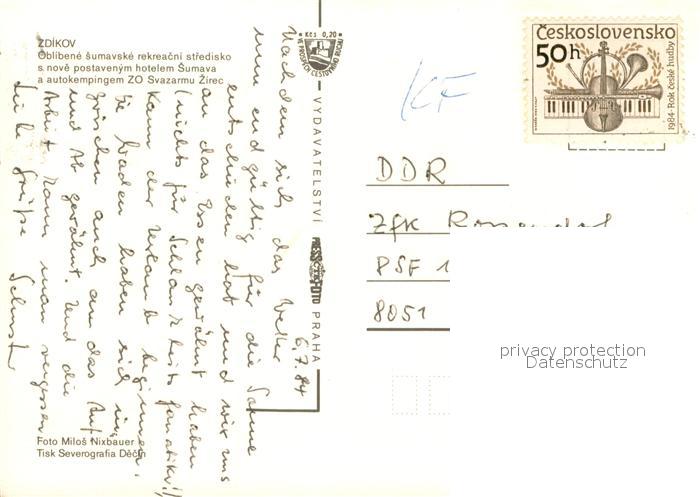 ZDÍKOV
Oblíbené šumavské rekreační středisko
s nově postaveným hotelem Šumava
a autokempingem ZO Svazarmu Žírec
Kčs 0,20
VE PROSPĚCH CESTOVNÍHO RUCHU
VYDAVATELSTVÍ PRESSFOTO PRAHA
Československo
50h
1984 - Rok české hudby
KF
DDR
ZfK Rossendorf
PSF 1
8051
6.7.84
Nachdem sich das Wetter
nun endgültig für die Sonne
entschieden hat und wir uns
an das Essen gewöhnt haben
(nichts für Schlankheitsfanatiker!)
kann der Urlaub beginnen.
Sie baden haben sich in
zwischen auch an das Auf
und Ab gewöhnt. Und die
Arbeit kann man vergessen
Liebe Grüße Schuster
privacy protection
Datenschutz
Foto Miloš Nixbauer
Tisk Severografia Děčín